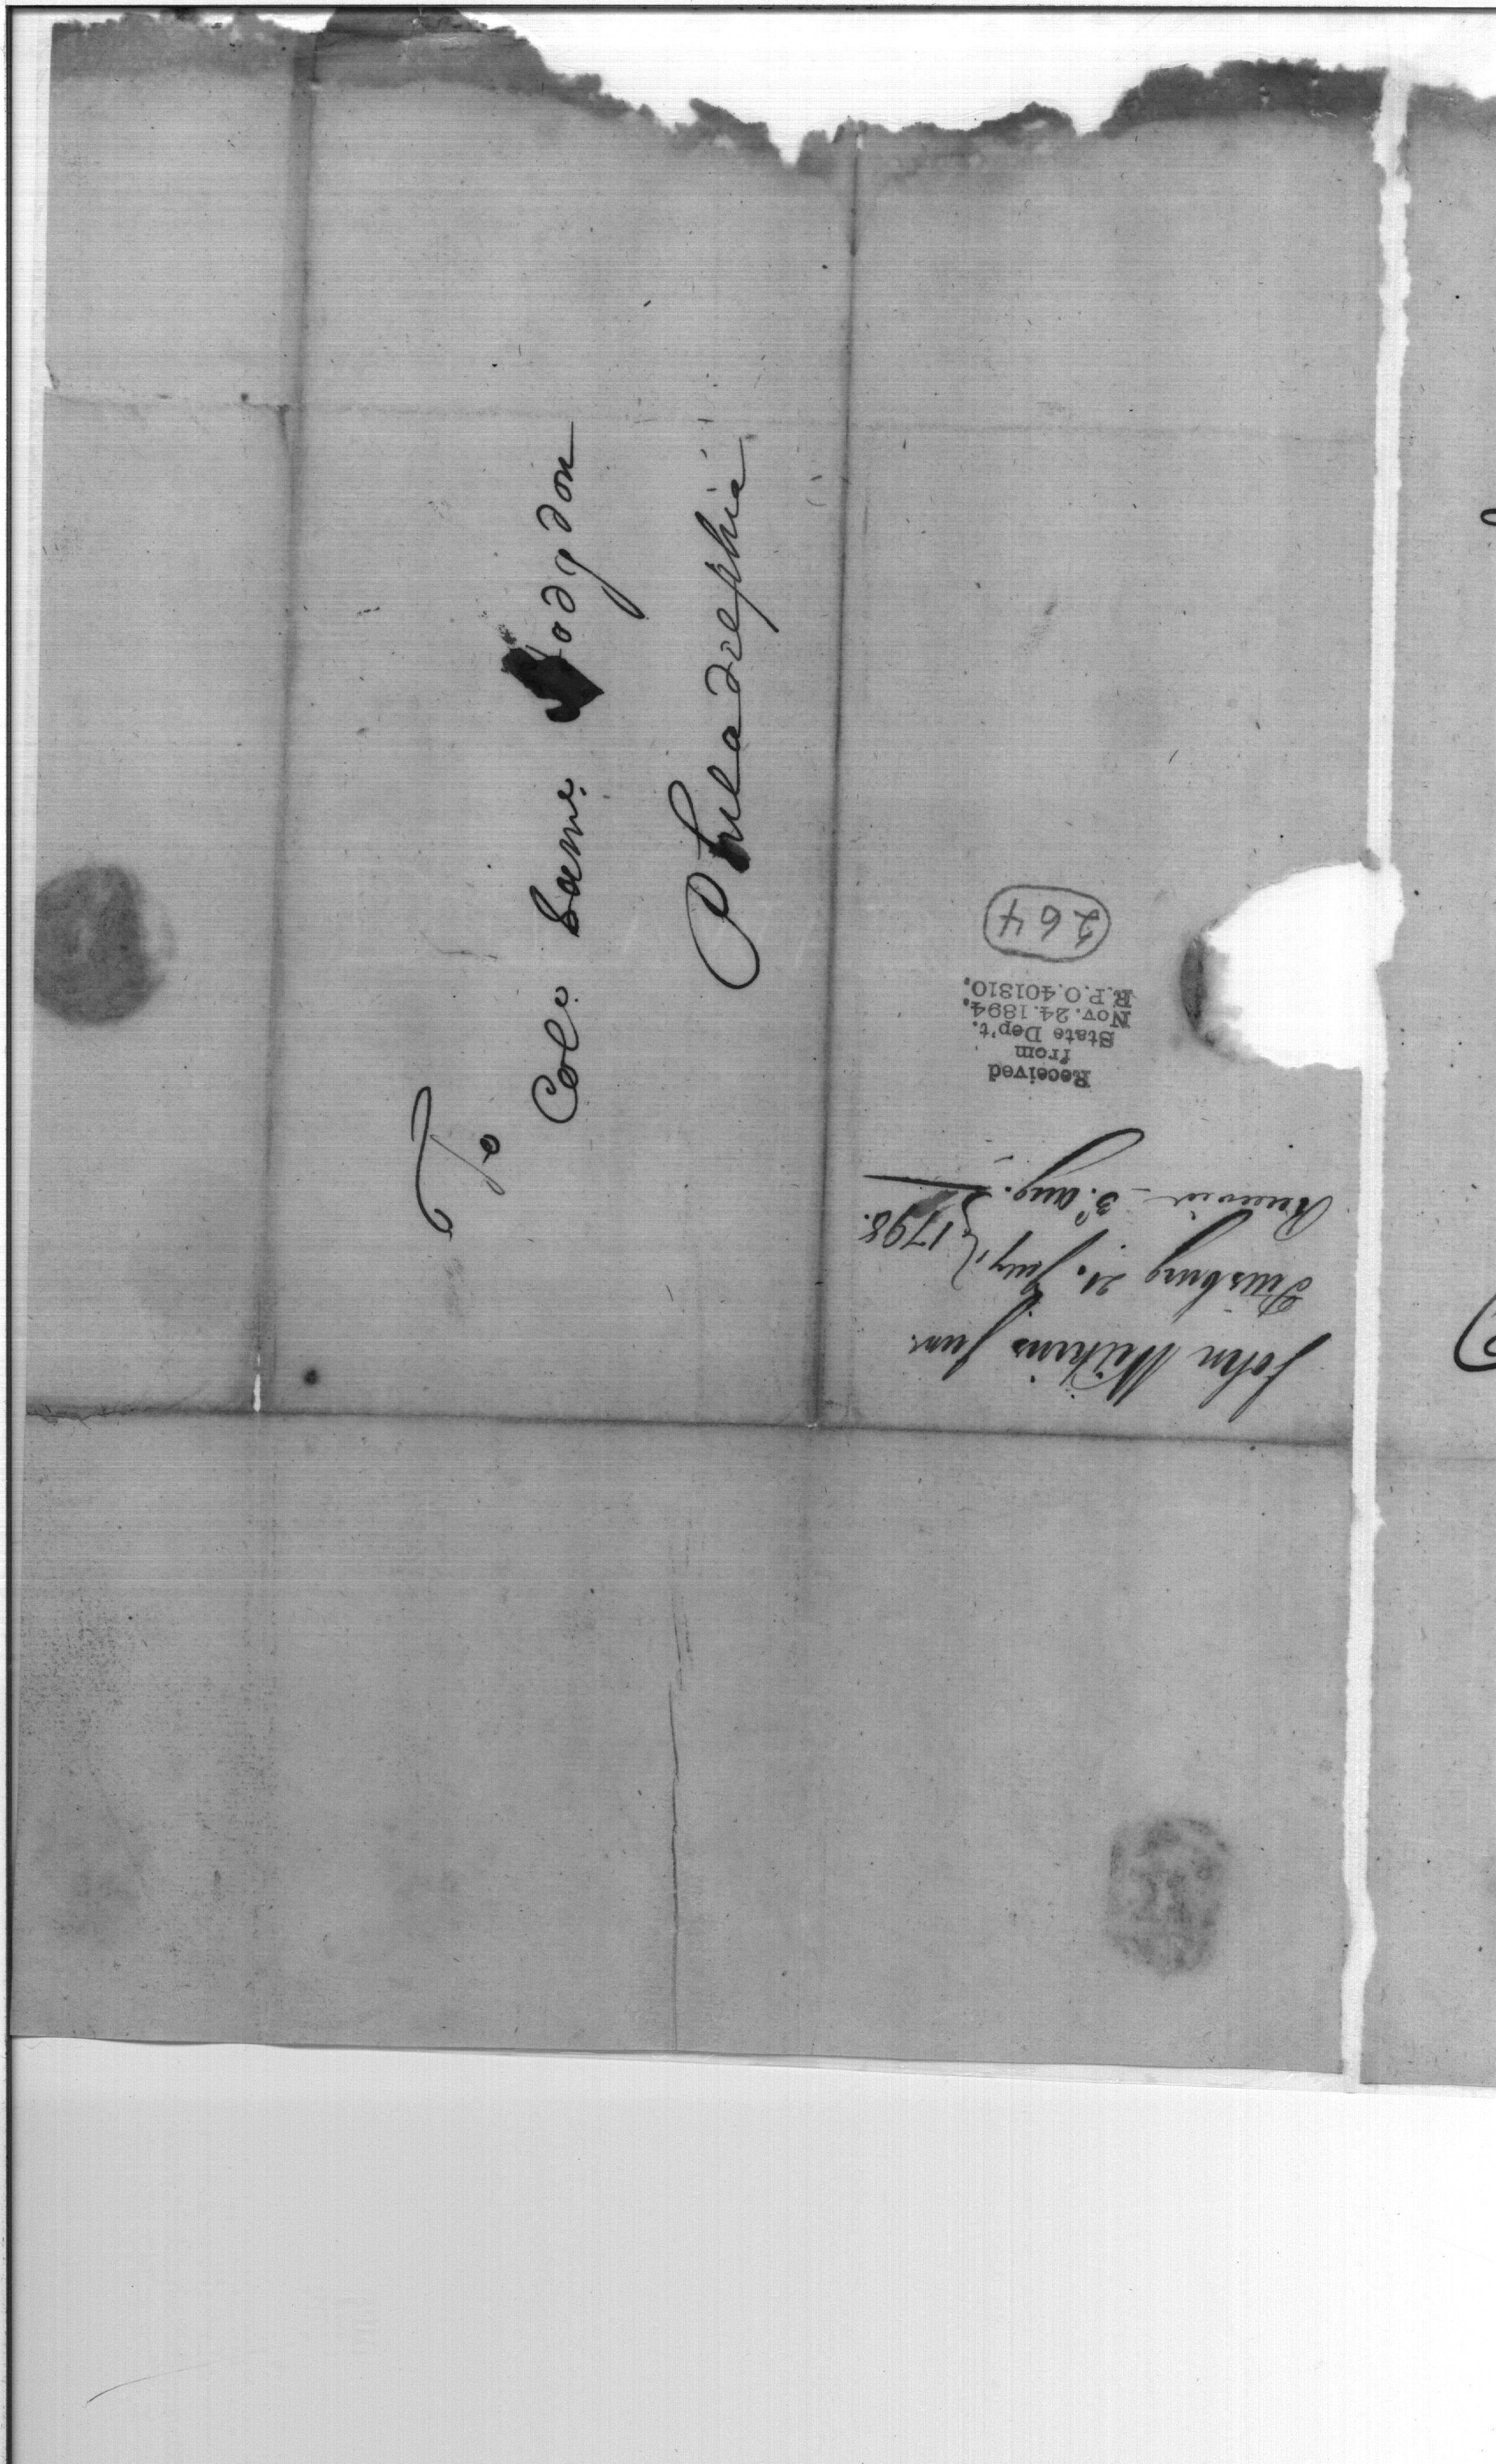 To
Colo. Saml. Hodgdon
Philadelphia
John Wilkins Junr.
Pittsburg 21. July
1798.
Received 3d. Aug.
Received
from
State Dep't.
Nov. 24. 1894.
R.P.O. 401310.
264